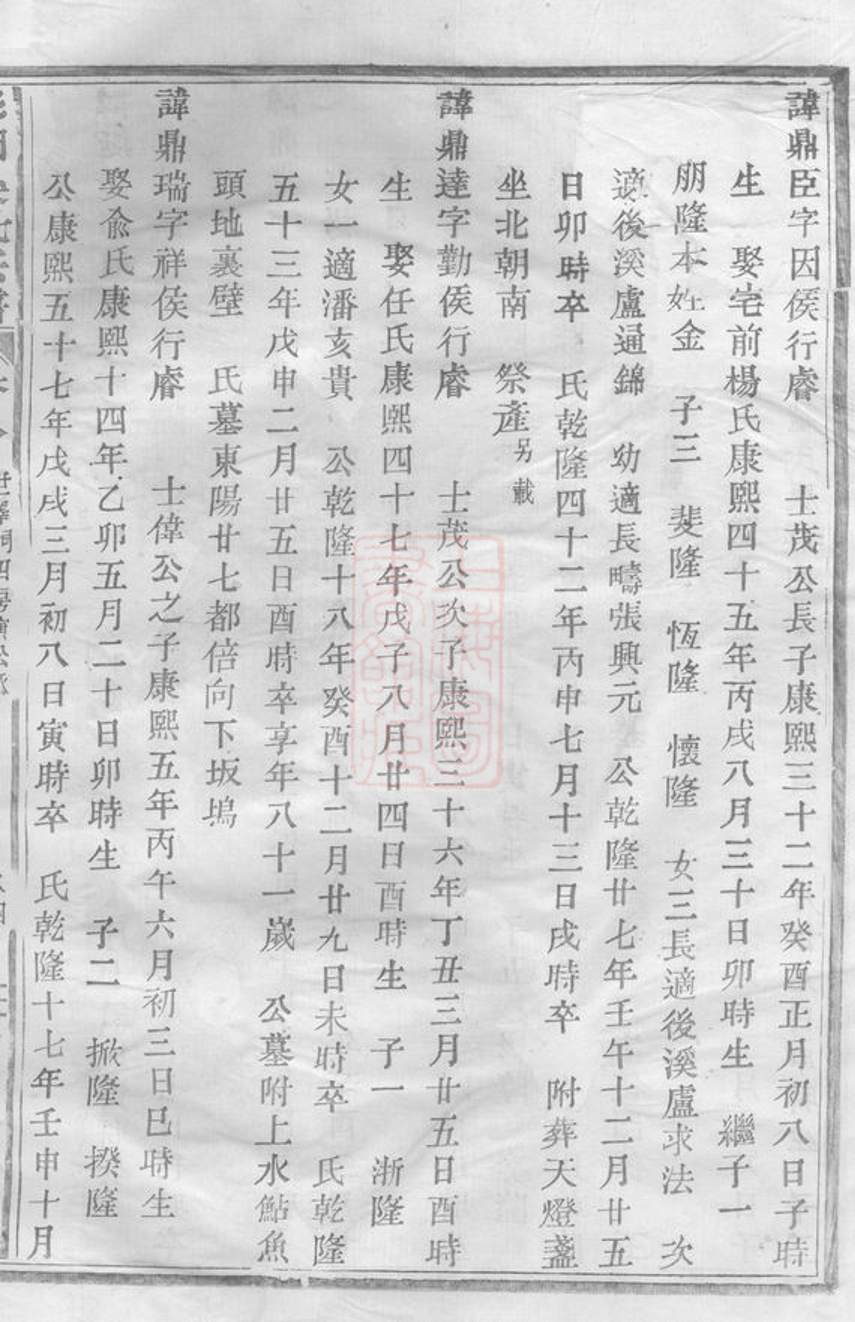 諱鼎臣字因侯行睿 士茂公長子康熙三十二年癸酉正月初八日子時
生 娶宅前楊氏康熙四十五年丙戌八月三十日卯時生 繼子一
朋隆本姓金 子三 斐隆 恆隆 懷隆 女三長適後溪盧求法 次
適後溪盧通錦 幼適長疇張興元 公乾隆廿七年壬午十二月廿五
日卯時卒 氏乾隆四十二年丙申七月十三日戌時卒 附葬天燈盞
坐北朝南 祭產另載
諱鼎達字勤侯行睿 士茂公次子康熙三十六年丁丑三月廿五日酉時
生 娶任氏康熙四十七年戊子八月廿四日酉時生 子一 浙隆
女一適潘亥貴 公乾隆十八年癸酉十二月廿九日未時卒 氏乾隆
五十三年戊申二月廿五日酉時卒享年八十一歲 公墓附上水鮎魚
頭地裏壁 氏墓東陽廿七都倍向下坂塢
諱鼎瑞字祥侯行睿 士偉公之子康熙五年丙午六月初三日巳時生
娶俞氏康熙十四年乙卯五月二十日卯時生 子二 掀隆 揆隆
公康熙五十七年戊戌三月初八日寅時卒 氏乾隆十七年壬申十月